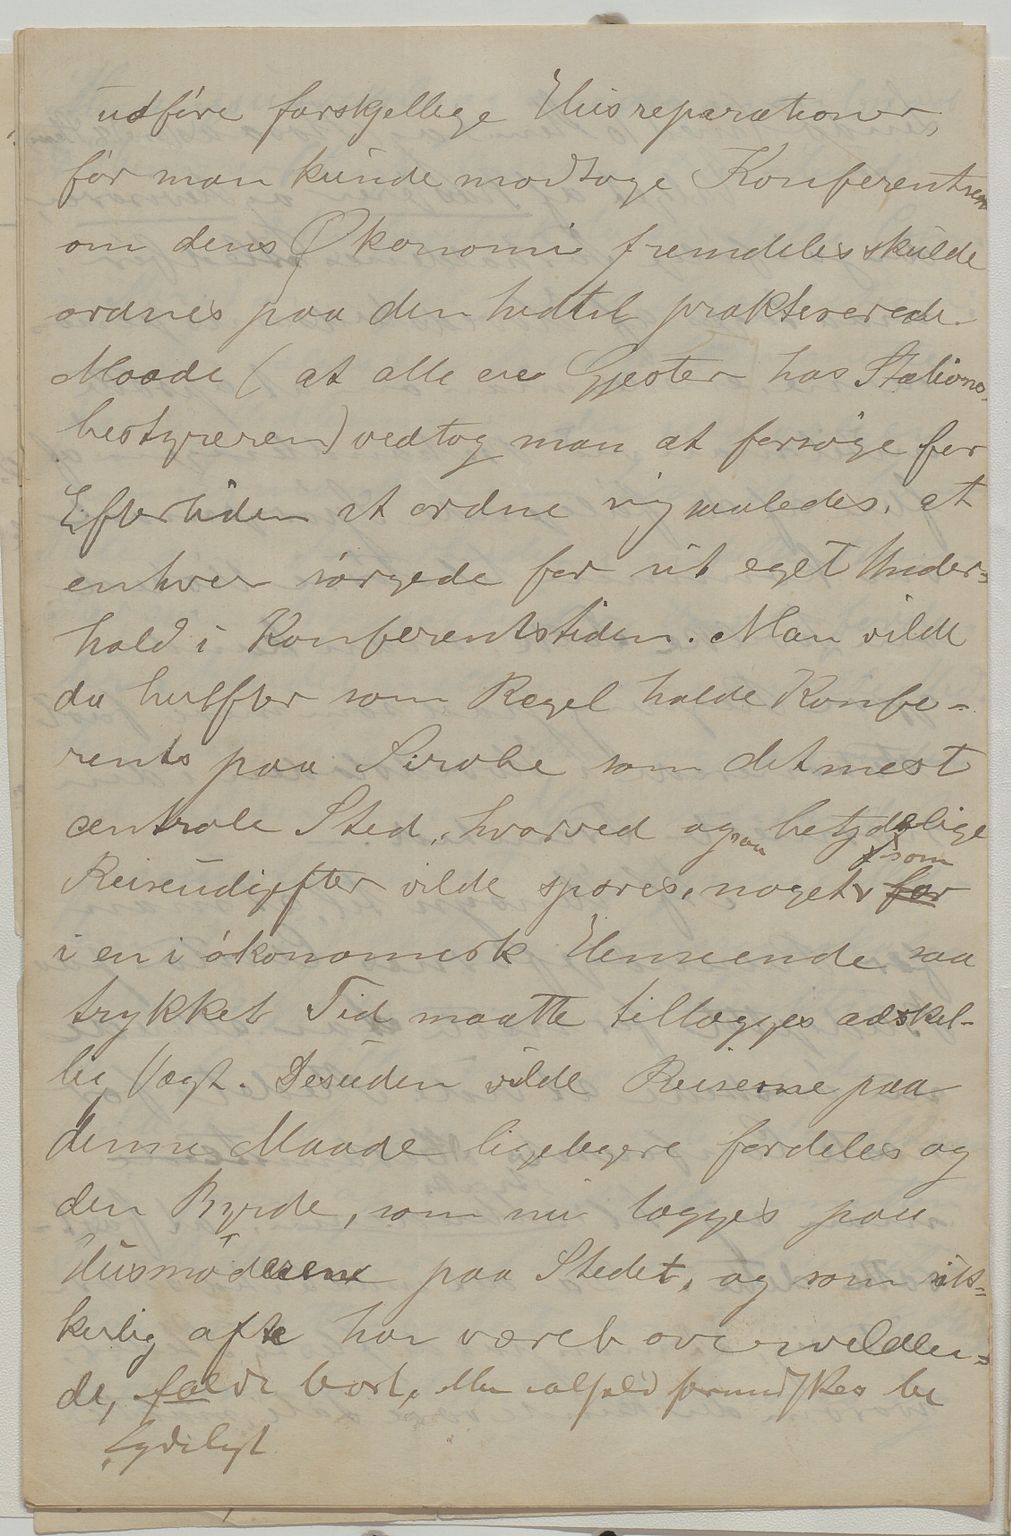 udföre forskjellige Húsreparationer,
för man kúnde modtage Konferentsen
om dens Økonomi fremdeles skúlde
ordnes paa den hidtil praktiserede
Maade (at alle ere Gjester hos Stations-
bestyreren) vedtog man at forsöge for
Eftertiden at ordne sig saaledes, at
enhver sörgede for sit eget Under-
hold i Konferentstiden. Man vilde
da herefter som Regel holde Konfe-
rents paa Sirabe som det mest
centrale Sted, hvorved ogsaa betydelige
Reiseúdgifter vilde spares, noget, som ~~for~~
i en i ökonomisk Henseende saa
trykket Tid maatte tillægges adskil-
lig Vægt. Desúden vilde Reiserne paa
denne Maade ligeligere fordeles og
den Byrde, som nú lægges paa
Húsmödrene paa Stedet, og som sik-
kerlig ofte har været overvælden-
de, falde bort, eller ialfald formindskes be
tydeligt